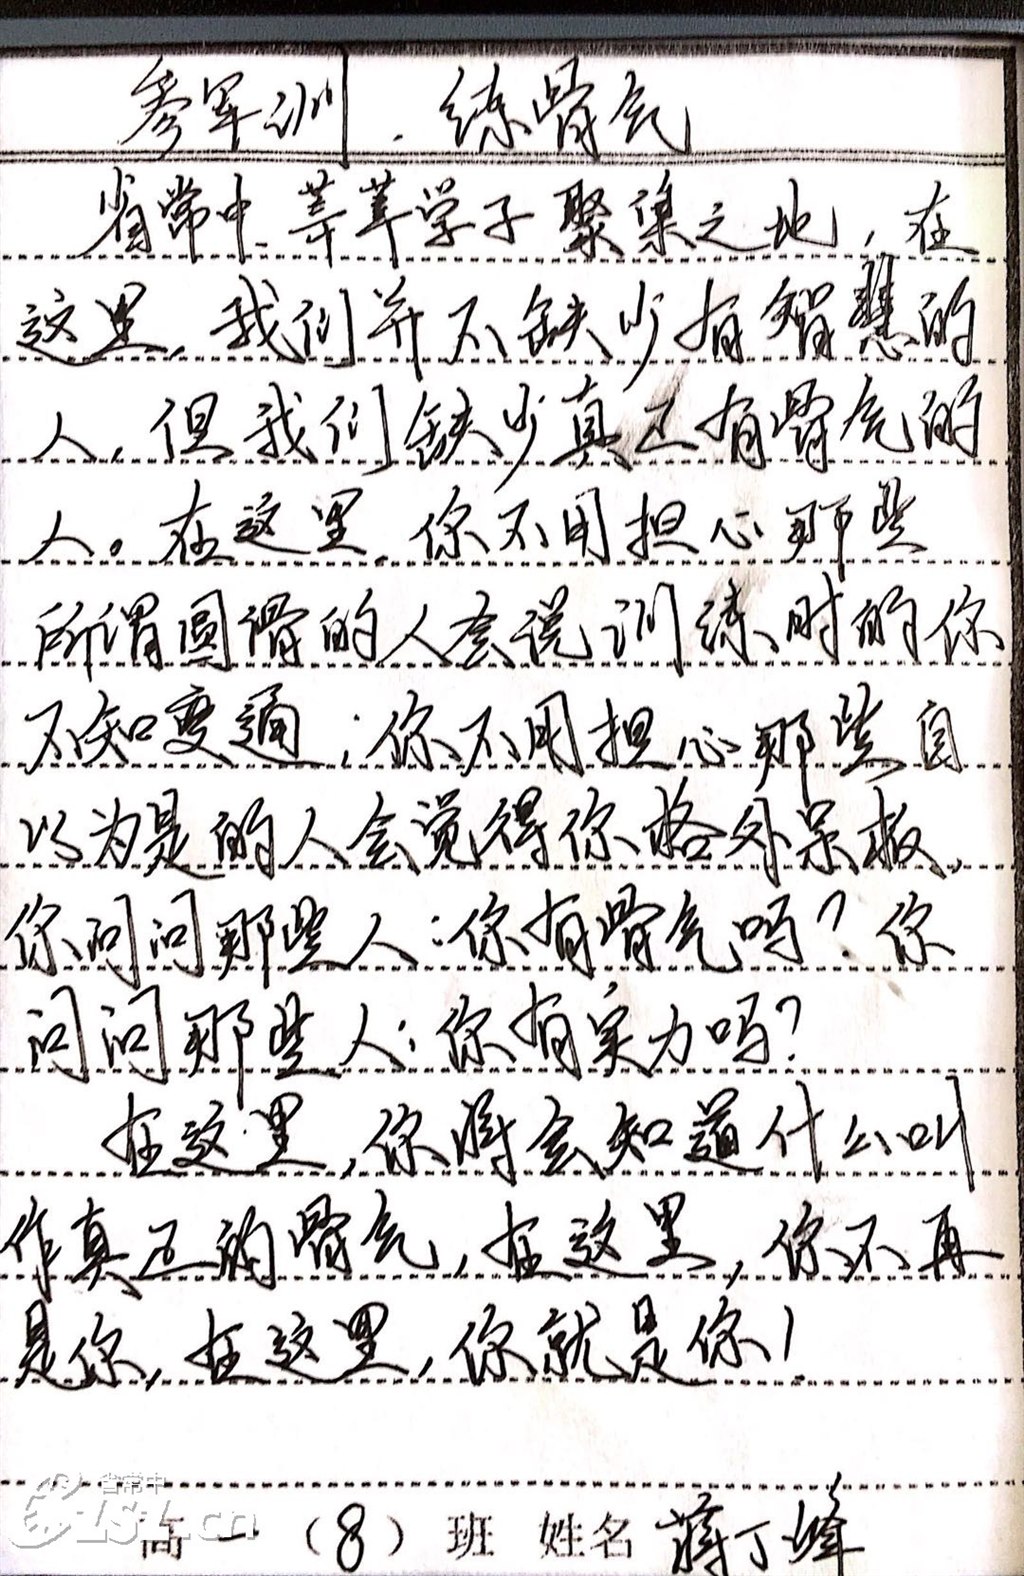 参军训，练骨气
省常中，莘莘学子聚集之地，在
这里，我们并不缺少有智慧的
人，但我们缺少真正有骨气的
人。在这里，你不用担心那些
所谓圆滑的人会说训练时的你
不知变通；你不用担心那些自
以为是的人会觉得你格外呆板，
你问问那些人：你有骨气吗？你
问问那些人：你有实力吗？
在这里，你将会知道什么叫
作真正的骨气，在这里，你不再
是你，在这里，你就是你！
省常中
高一（8）班 姓名 蒋丁峰